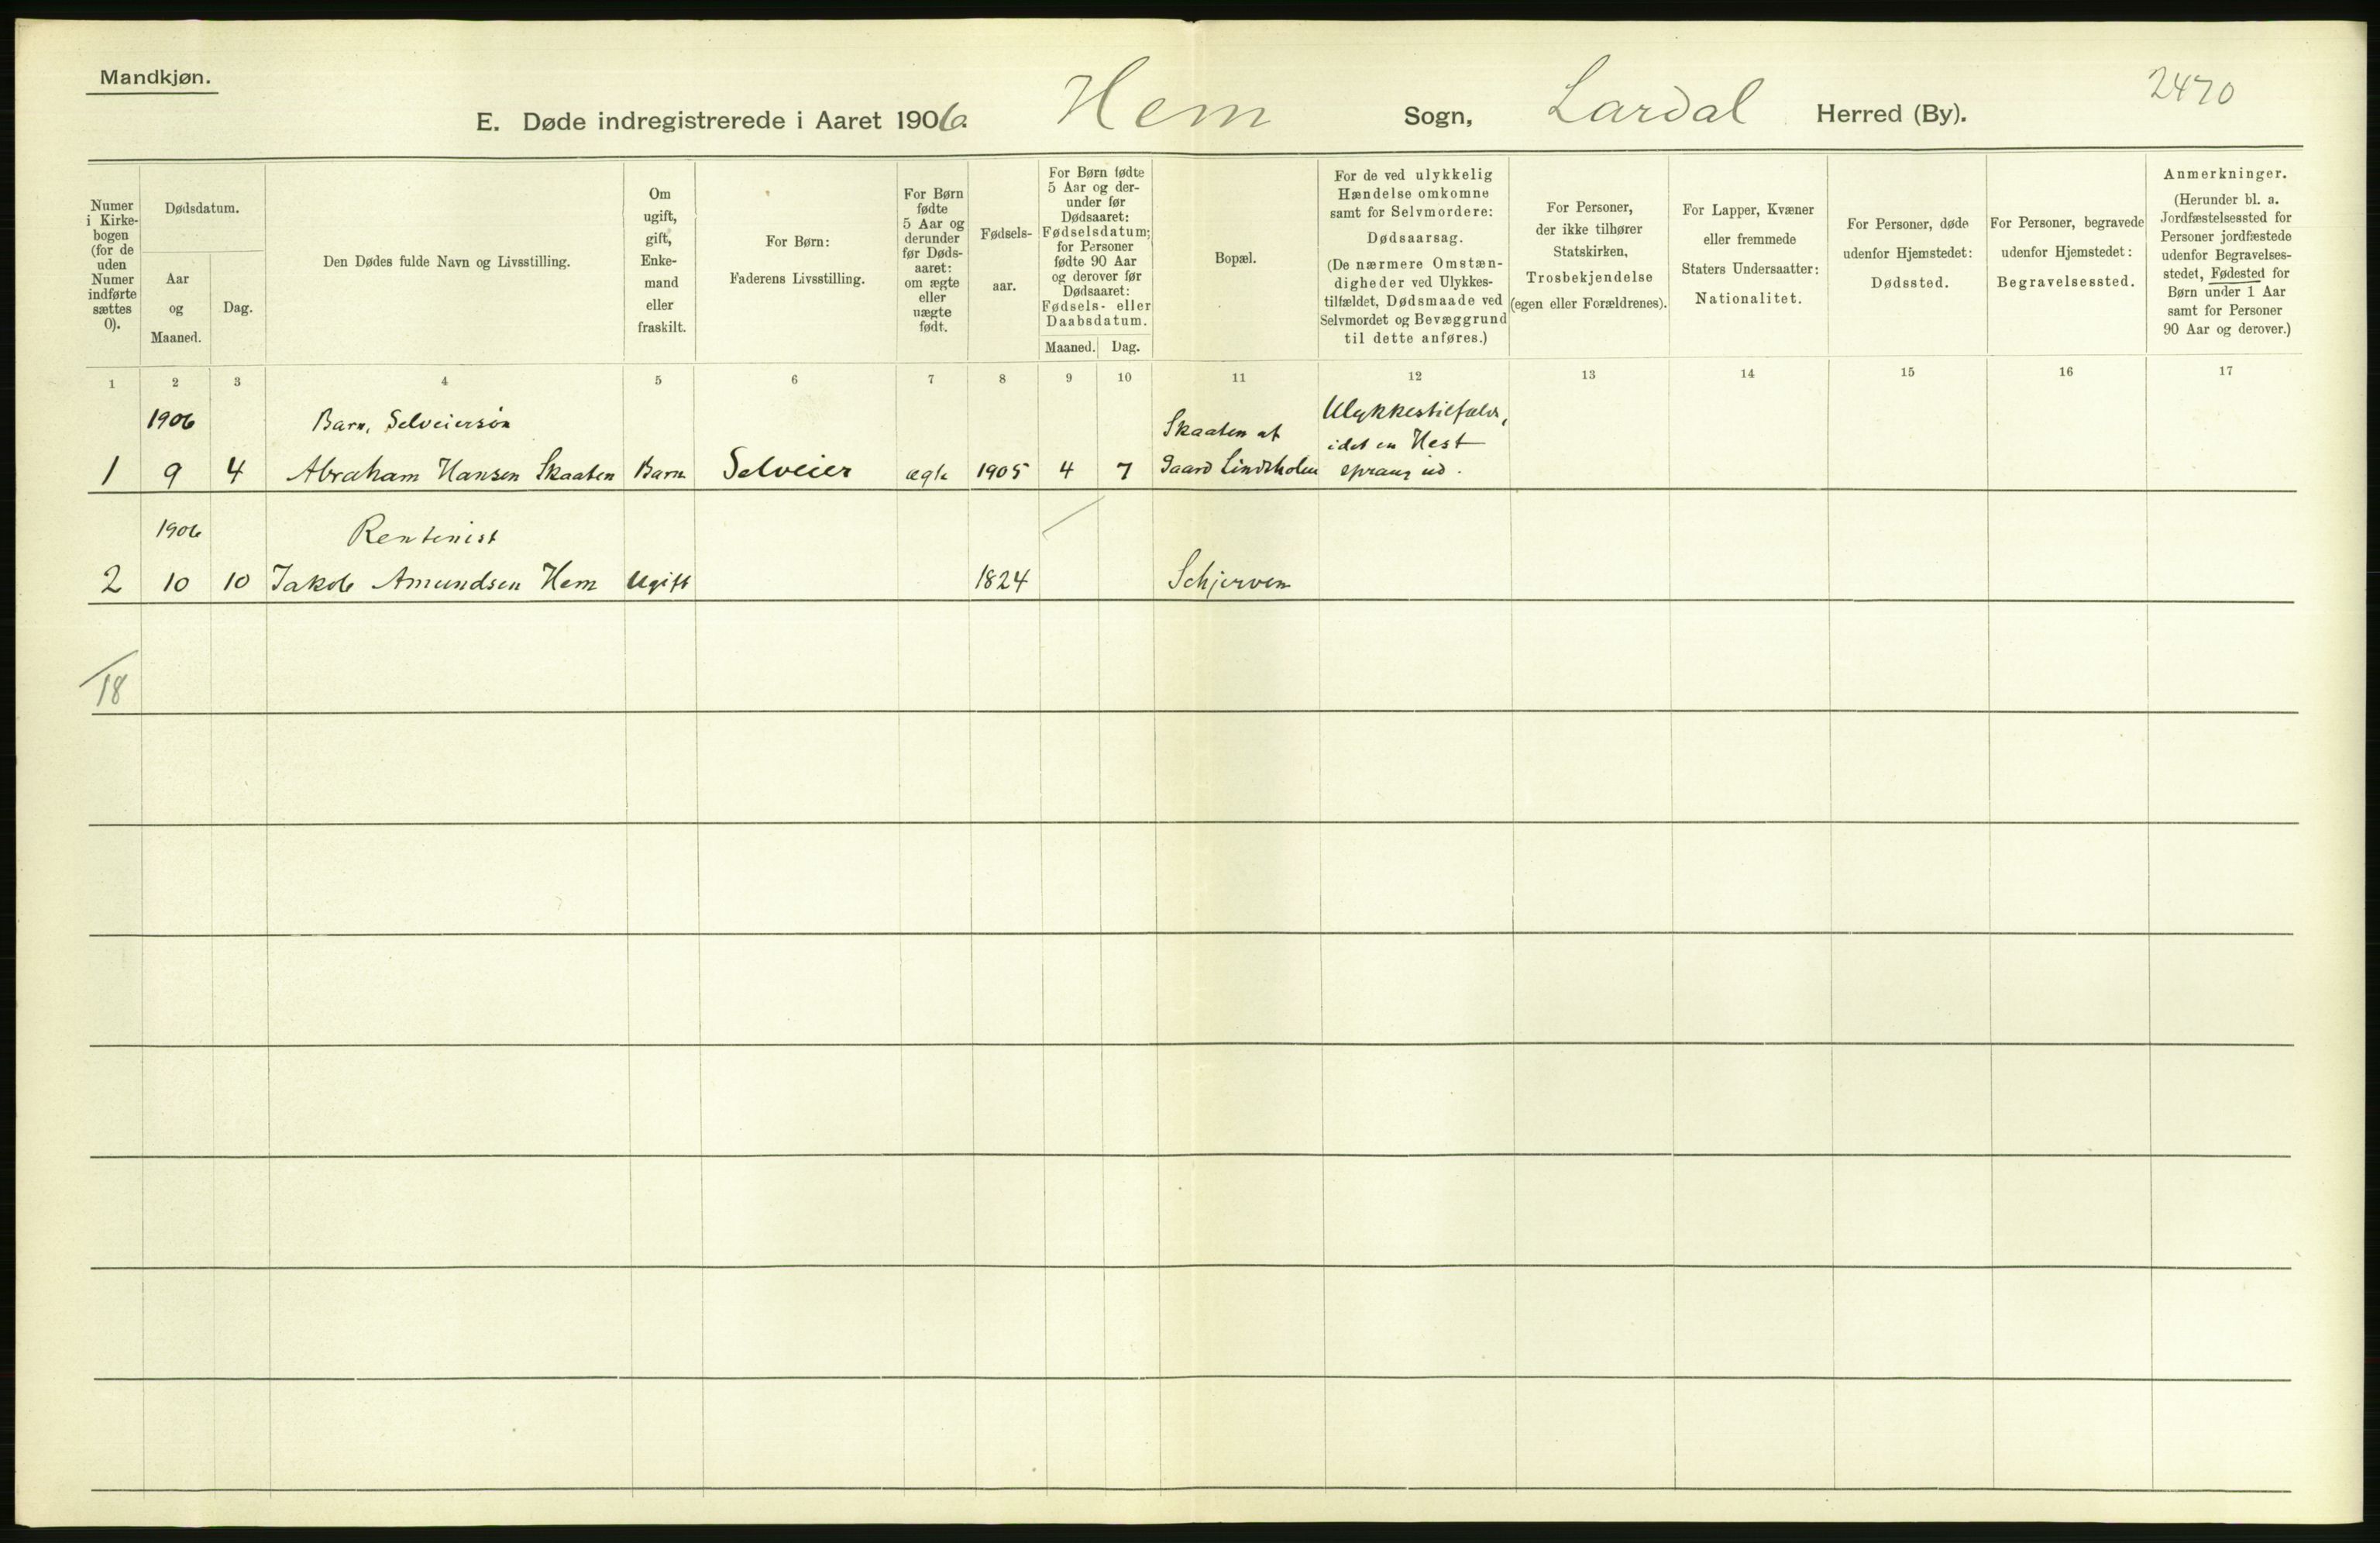 Mandkjøn.
2470
E. Døde indregistrerede i Aaret 1906. Hem Sogn, Lardal Herred (By).
Numer
i Kirke-
bogen
(for de
uden
Numer
indførte
sættes
0).
Dødsdatum.
Aar
og
Maaned.
Dag.
Den Dødes fulde Navn og Livsstilling.
Om
ugift,
gift,
Enke-
mand
eller
fraskilt.
For Børn:
Faderens Livsstilling.
For Børn
fødte
5 Aar og
derunder
før Døds-
aaret:
om ægte
eller
uægte
født.
Fødsels-
aar.
For Børn fødte
5 Aar og der-
under før
Dødsaaret:
Fødselsdatum;
for Personer
fødte 90 Aar
og derover før
Dødsaaret:
Fødsels- eller
Daabsdatum.
Maaned. Dag.
Bopæl.
For de ved ulykkelig
Hændelse omkomne
samt for Selvmordere:
Dødsaarsag.
(De nærmere Omstæn-
digheder ved Ulykkes-
tilfældet, Dødsmaade ved
Selvmordet og Bevæggrund
til dette anføres.)
For Personer,
der ikke tilhører
Statskirken,
Trosbekjendelse
(egen eller Forældrenes).
For Lapper, Kvæner
eller fremmede
Staters Undersaatter:
Nationalitet.
For Personer, døde
udenfor Hjemstedet:
Dødssted.
For Personer, begravede
udenfor Hjemstedet:
Begravelsessted.
Anmerkninger.
(Herunder bl. a.
Jordfæstelsessted for
Personer jordfæstede
udenfor Begravelses-
stedet, Fødested for
Børn under 1 Aar
samt for Personer
90 Aar og derover.)
1 2 3 4 5 6 7 8 9 10 11 12 13 14 15 16 17
1906 Barn, Selveiersøn Skaaten af Ulykkestilfælde, idet en Hest
1 9 4 Abraham Hansen Skaaten Barn Selveier ægte 1905 4 7 Gaard Lindsholm sprang ud.
1906 Rentenist
2 10 10 Jakob Amundsen Hem Ugift 1824 Schjerven
18